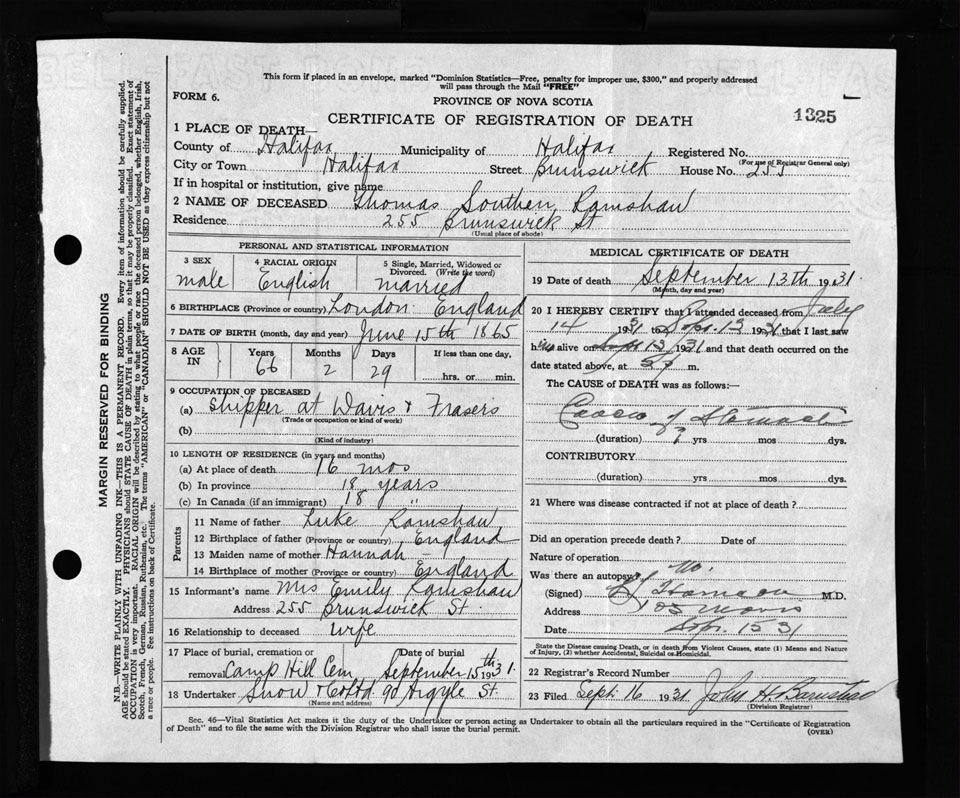 This form if placed in an envelope, marked "Dominion Statistics—Free, penalty for improper use, $300," and properly addressed
will pass through the Mail "FREE"
FORM 6.
PROVINCE OF NOVA SCOTIA
CERTIFICATE OF REGISTRATION OF DEATH
1325
1 PLACE OF DEATH—
County of Halifax Municipality of Halifax Registered No.
(For use of Registrar General only)
City or Town Halifax Street Brunswick House No. 255
If in hospital or institution, give name
2 NAME OF DECEASED Thomas Southen Ramshaw
Residence 255 Brunswick St
(Usual place of abode)
PERSONAL AND STATISTICAL INFORMATION
3 SEX
male
4 RACIAL ORIGIN
English
5 Single, Married, Widowed or
Divorced. (Write the word)
married
6 BIRTHPLACE (Province or country) London England
7 DATE OF BIRTH (month, day and year) June 15th 1865
8 AGE IN
Years Months Days If less than one day,
66 2 29 hrs. or min.
9 OCCUPATION OF DECEASED
(a) Shipper at Davis & Frasers
(Trade or occupation or kind of work)
(b)
(Kind of industry)
10 LENGTH OF RESIDENCE (in years and months)
(a) At place of death 16 mos
(b) In province 18 years
(c) In Canada (if an immigrant) 18 "
Parents
11 Name of father Luke Ramshaw
12 Birthplace of father (Province or country) England
13 Maiden name of mother Hannah —
14 Birthplace of mother (Province or country) England
15 Informant's name Mrs Emily Ramshaw
Address 255 Brunswick St.
16 Relationship to deceased wife
17 Place of burial, cremation or removal Camp Hill Cem
Date of burial September 15th 1931.
18 Undertaker Snow & Co Ltd 90 Argyle St
(Name and address)
MEDICAL CERTIFICATE OF DEATH
19 Date of death September 13th 1931.
(Month, day and year)
20 I HEREBY CERTIFY that I attended deceased from July
14 1931 to Sept. 13 1931 that I last saw
him alive on Sept 13 1931 and that death occurred on the
date stated above, at m.
The CAUSE of DEATH was as follows:—
Cancer of Stomach
(duration) ? yrs mos dys.
CONTRIBUTORY
(duration) yrs mos dys.
21 Where was disease contracted if not at place of death?
Did an operation precede death? Date of
Nature of operation
Was there an autopsy? No.
(Signed) M.D.
Address 105 Morris
Date Sept. 15 31
State the Disease causing Death, or in death from Violent Causes, state (1) Means and Nature
of Injury, (2) whether Accidental, Suicidal or Homicidal.
22 Registrar's Record Number
23 Filed Sept 16 1931 John H. Barnstead
(Division Registrar)
Sec. 46—Vital Statistics Act makes it the duty of the Undertaker or person acting as Undertaker to obtain all the particulars required in the "Certificate of Registration
of Death" and to file the same with the Division Registrar who shall issue the burial permit.
(OVER)
MARGIN RESERVED FOR BINDING
N.B.—WRITE PLAINLY WITH UNFADING INK—THIS IS A PERMANENT RECORD. Every item of information should be carefully supplied.
AGE should be stated EXACTLY. PHYSICIANS should STATE CAUSE OF DEATH in plain terms, so that it may be properly classified. Exact statement of
OCCUPATION is very important. RACIAL ORIGIN will be described by stating to what people or race the deceased person belonged, whether English, Irish,
Scotch, French, German, Russian, Ruthenian, etc. The terms "AMERICAN" or "CANADIAN" SHOULD NOT BE USED as they express citizenship but not
a race or people. See instructions on back of Certificate.